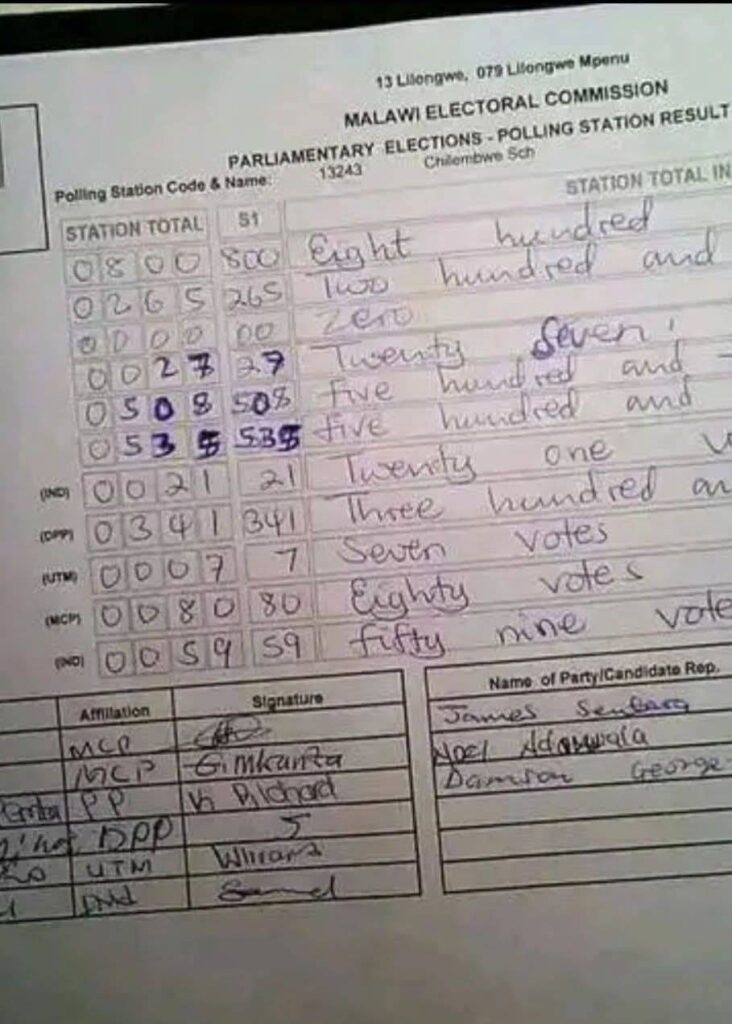 13 Lilongwe, 079 Lilongwe Mpenu
MALAWI ELECTORAL COMMISSION
PARLIAMENTARY ELECTIONS - POLLING STATION RESULT
Polling Station Code & Name: 13243 Chilembwe Sch
STATION TOTAL S1 STATION TOTAL IN
0 8 0 0 800 Eight hundred
0 2 6 5 265 Two hundred and
0 0 0 0 00 Zero
0 0 2 7 27 Twenty Seven
0 5 0 8 508 five hundred and
0 5 3 5 535 five hundred and
(IND) 0 0 2 1 21 Twenty one
(DPP) 0 3 4 1 341 Three hundred an
(UTM) 0 0 0 7 7 Seven votes
(MCP) 0 0 8 0 80 Eighty votes
(IND) 0 0 5 9 59 fifty nine vote
Affiliation Signature Name of Party/Candidate Rep.
MCP James
MCP Gimkanta Noel
PP Richard Damson George
DPP
UTM